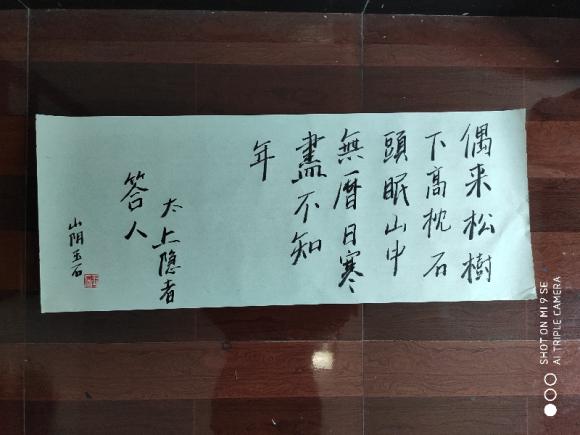 偶来松樹
下高枕石
頭眠山中
無曆日寒
盡不知
年
太上隐者
答人
山阴玉石
SHOT ON MI 9 SE
AI TRIPLE CAMERA